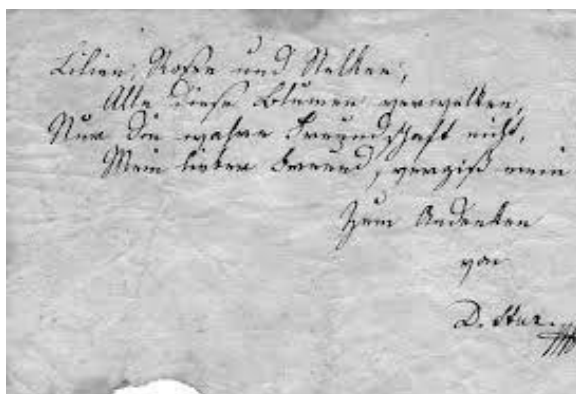 Lilien, Rosen und Nelken,
Alle diese Blumen verwelken,
Nur die wahre Freundschaft nicht,
Mein lieber Freund, vergiß mein
Zum Andenken
von
D. Stur.